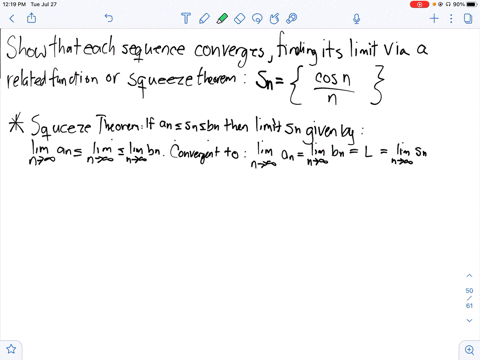 12:19 PM Tue Jul 27
90%
Show that each sequence converges, finding its limit via a
related function or squeeze theorem: Sn = { cos n / n }
* Squeeze Theorem: If an ≤ sn ≤ bn then limit sn given by:
lim n→∞ an ≤ lim n→∞ ≤ lim n→∞ bn. Convergent to: lim n→∞ an = lim n→∞ bn = L = lim n→∞ sn
50
/
61